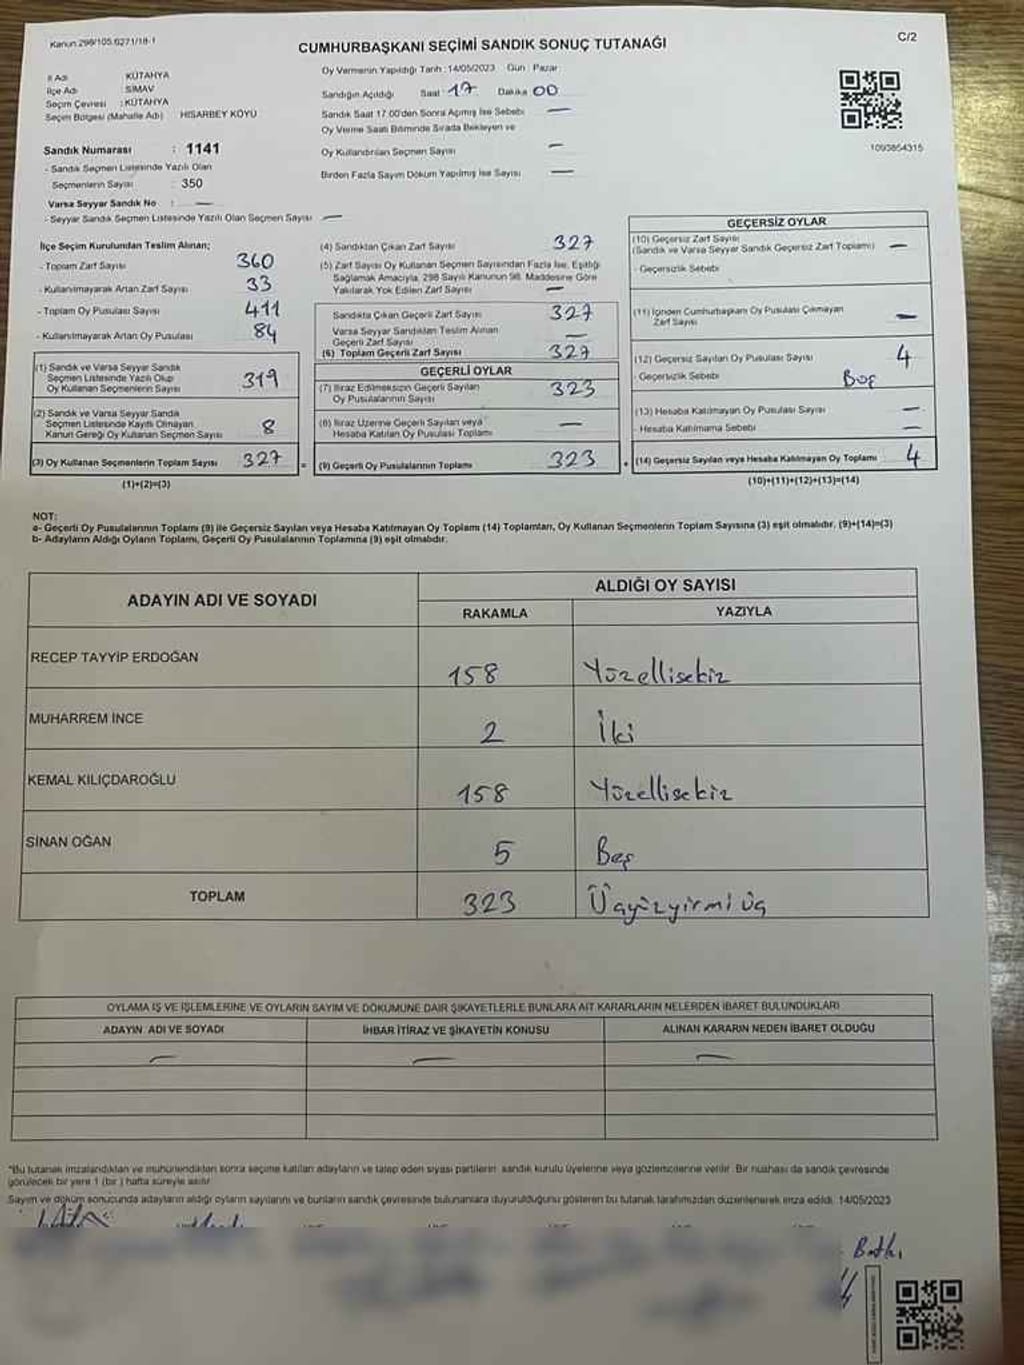 Kanun:298/105.6271/18-1
CUMHURBAŞKANI SEÇİMİ SANDIK SONUÇ TUTANAĞI
C/2
İl Adı : KÜTAHYA
İlçe Adı : SİMAV
Seçim Çevresi : KÜTAHYA
Seçim Bölgesi (Mahalle Adı) HİSARBEY KÖYÜ
Oy Vermenin Yapıldığı Tarih : 14/05/2023 Gün : Pazar
Sandığın Açıldığı Saat : 17 Dakika 00
Sandık Saat 17.00'den Sonra Açılmış İse Sebebi —
Oy Verme Saati Bitiminde Sırada Bekleyen ve
Oy Kullandırılan Seçmen Sayısı —
Birden Fazla Sayım Döküm Yapılmış İse Sayısı —
1093854315
Sandık Numarası : 1141
- Sandık Seçmen Listesinde Yazılı Olan
Seçmenlerin Sayısı : 350
Varsa Seyyar Sandık No : —
- Seyyar Sandık Seçmen Listesinde Yazılı Olan Seçmen Sayısı —
İlçe Seçim Kurulundan Teslim Alınan;
- Toplam Zarf Sayısı 360
- Kullanılmayarak Artan Zarf Sayısı 33
- Toplam Oy Pusulası Sayısı 411
- Kullanılmayarak Artan Oy Pusulası 84
(1) Sandık ve Varsa Seyyar Sandık
Seçmen Listesinde Yazılı Olup
Oy Kullanan Seçmenlerin Sayısı 319
(2) Sandık ve Varsa Seyyar Sandık
Seçmen Listesinde Kayıtlı Olmayan
Kanun Gereği Oy Kullanan Seçmen Sayısı 8
(3) Oy Kullanan Seçmenlerin Toplam Sayısı 327
(1)+(2)=(3)
(4) Sandıktan Çıkan Zarf Sayısı 327
(5) Zarf Sayısı Oy Kullanan Seçmen Sayısından Fazla İse, Eşitliği
Sağlamak Amacıyla, 298 Sayılı Kanunun 98. Maddesine Göre
Yakılarak Yok Edilen Zarf Sayısı —
Sandıkta Çıkan Geçerli Zarf Sayısı 327
Varsa Seyyar Sandıktan Teslim Alınan
Geçerli Zarf Sayısı —
(6) Toplam Geçerli Zarf Sayısı 327
GEÇERLİ OYLAR
(7) İtiraz Edilmeksizin Geçerli Sayılan
Oy Pusulalarının Sayısı 323
(8) İtiraz Üzerine Geçerli Sayılan veya
Hesaba Katılan Oy Pusulası Toplamı —
= (9) Geçerli Oy Pusulalarının Toplamı 323
GEÇERSİZ OYLAR
(10) Geçersiz Zarf Sayısı
(Sandık ve Varsa Seyyar Sandık Geçersiz Zarf Toplamı) —
- Geçersizlik Sebebi
(11) İçinden Cumhurbaşkanı Oy Pusulası Çıkmayan
Zarf Sayısı —
(12) Geçersiz Sayılan Oy Pusulası Sayısı 4
- Geçersizlik Sebebi Boş
(13) Hesaba Katılmayan Oy Pusulası Sayısı —
- Hesaba Katılmama Sebebi —
+ (14) Geçersiz Sayılan veya Hesaba Katılmayan Oy Toplamı 4
(10)+(11)+(12)+(13)=(14)
NOT:
a- Geçerli Oy Pusulalarının Toplamı (9) ile Geçersiz Sayılan veya Hesaba Katılmayan Oy Toplamı (14) Toplamları, Oy Kullanan Seçmenlerin Toplam Sayısına (3) eşit olmalıdır. (9)+(14)=(3)
b- Adayların Aldığı Oyların Toplamı, Geçerli Oy Pusulalarının Toplamına (9) eşit olmalıdır.
ADAYIN ADI VE SOYADI
ALDIĞI OY SAYISI
RAKAMLA YAZIYLA
RECEP TAYYİP ERDOĞAN 158 Yüzellisekiz
MUHARREM İNCE 2 İki
KEMAL KILIÇDAROĞLU 158 Yüzellisekiz
SİNAN OĞAN 5 Beş
TOPLAM 323 Üçyüzyirmi üç
OYLAMA İŞ VE İŞLEMLERİNE VE OYLARIN SAYIM VE DÖKÜMÜNE DAİR ŞİKAYETLERLE BUNLARA AİT KARARLARIN NELERDEN İBARET BULUNDUKLARI
ADAYIN ADI VE SOYADI İHBAR İTİRAZ VE ŞİKAYETİN KONUSU ALINAN KARARIN NEDEN İBARET OLDUĞU
— — —
*Bu tutanak imzalandıktan ve mühürlendikten sonra seçime katılan adayların ve talep eden siyasi partilerin sandık kurulu üyelerine veya gözlemcilerine verilir. Bir nüshası da sandık çevresinde
görülecek bir yere 1 (bir) hafta süreyle asılır.
Sayım ve döküm sonucunda adayların aldığı oyların sayılarını ve bunların sandık çevresinde bulunanlara duyurulduğunu gösteren bu tutanak tarafımızdan düzenlenerek imza edildi. 14/05/2023